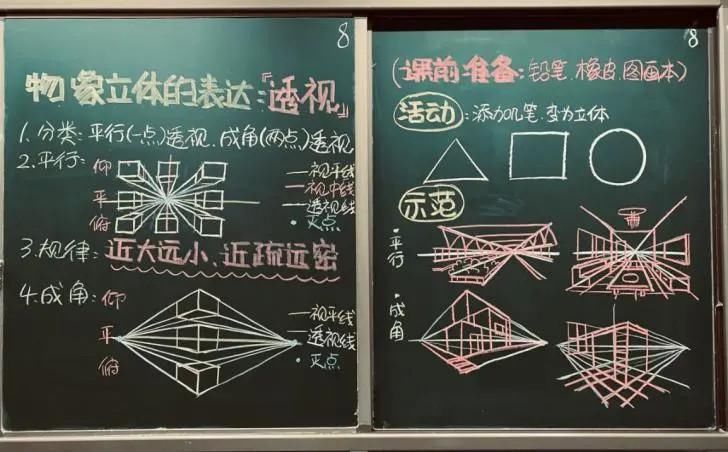 8
物象立体的表达:『透视』
1.分类:平行(一点)透视、成角(两点)透视
2.平行:
仰
平
俯
视平线
视中线
透视线
灭点
3.规律:近大远小、近疏远密
4.成角:
仰
平
俯
视平线
透视线
灭点
8
(课前准备:铅笔、橡皮、图画本)
活动:添加几笔,变为立体
示范
·平行
·成角